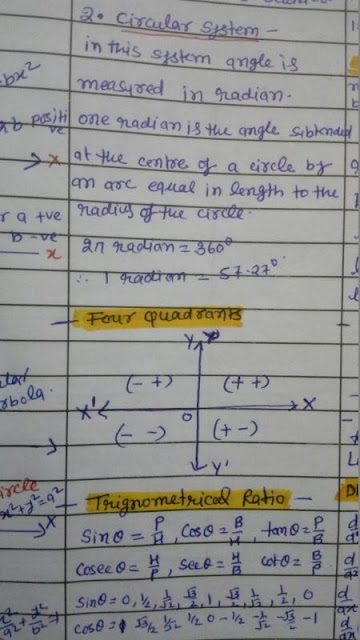 2. Circular System -
in this system angle is
measured in radian.
one radian is the angle subtended
at the centre of a circle by
an arc equal in length to the
radius of the circle.
2π radian = 360°
∴ 1 radian = 57.27°
- Four Quadrants
Y
(- +) (+ +)
X' O X
(- -) (+ -)
Y'
- Trignometrical Ratio -
Sinθ = P/H, Cosθ = B/H, tanθ = P/B
Cosecθ = H/P, Secθ = H/B, Cotθ = B/P
Sinθ = 0, 1/2, 1/√2, √3/2, 1, √3/2, 1/√2, 1/2, 0
Cosθ = 1 √3/2 1/√2 1/2 0 -1/2 -1/√2 -√3/2 -1
bx²
positi
ve
x
r a +ve
b -ve
x
rbola.
ircle
x²+y²=a²
X